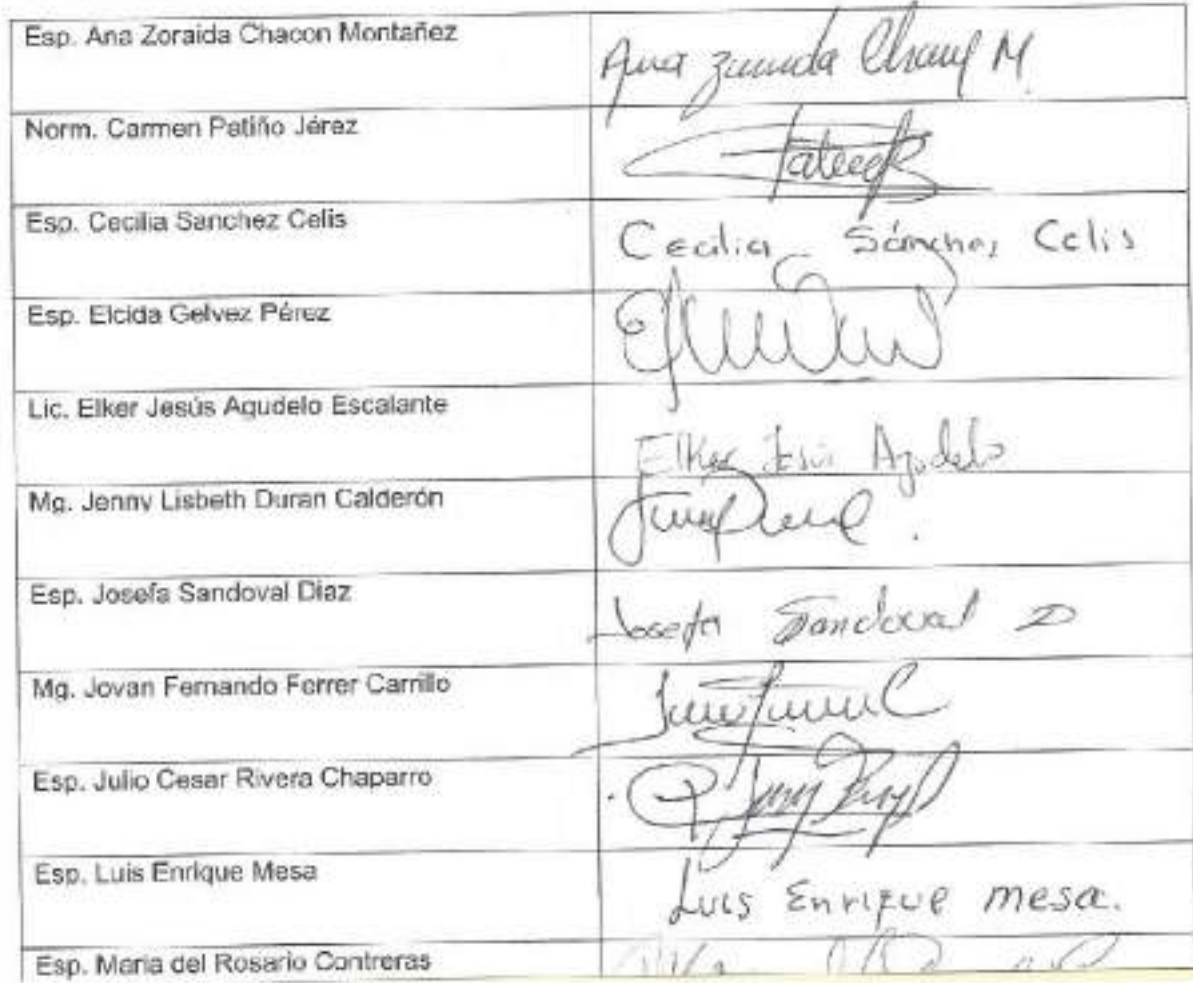 Esp. Ana Zoraida Chacon Montañez
Ana M.
Norm. Carmen Patiño Jérez
Esp. Cecilia Sanchez Celis
Cecilia Sánchez Celis
Esp. Elcida Gelvez Pérez
Lic. Elker Jesús Agudelo Escalante
Elker Jesús Agudelo
Mg. Jenny Lisbeth Duran Calderón
Esp. Josefa Sandoval Diaz
Josefa Sandoval D
Mg. Jovan Fernando Ferrer Carrillo
Esp. Julio Cesar Rivera Chaparro
Esp. Luis Enrique Mesa
Luis Enrique mesa.
Esp. Maria del Rosario Contreras